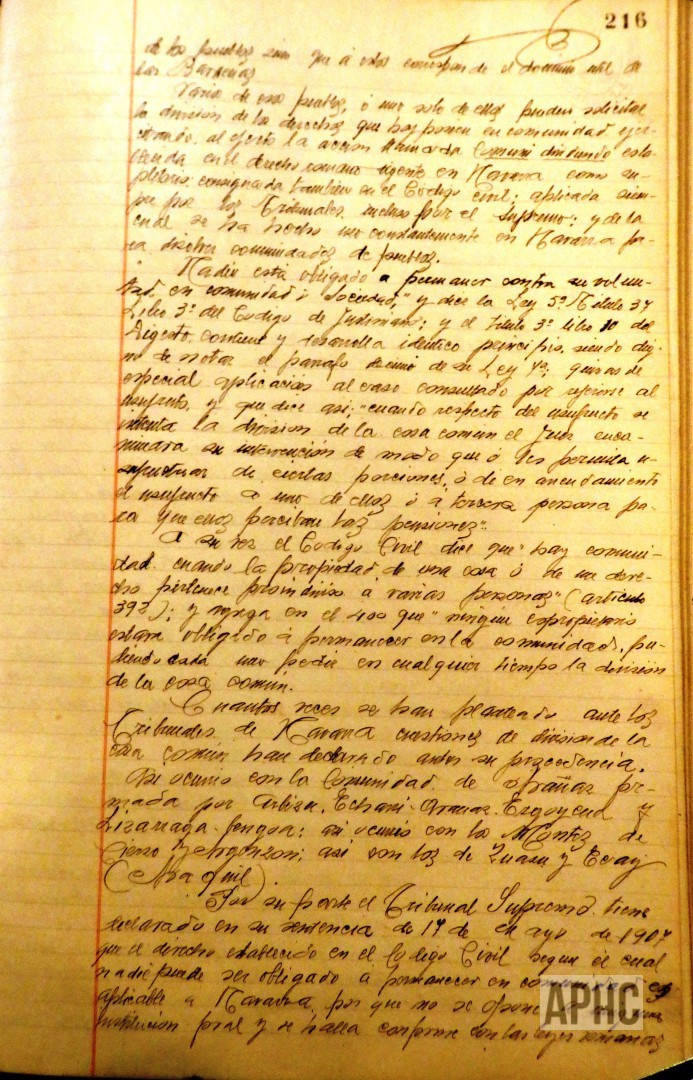 216
de los pueblos sino que á estos corresponde el dominio util de
las Bardenas
Varios de esos pueblos, ó uno solo de ellos pueden solicitar
la division de los derechos que hoy poseen en comunidad ejer-
citando, al efecto la acción llamada Comuni dividundo esta-
blecida en el derecho romano vigente en Navarra como su-
pletorio; consignada tambien en el Código Civil; aplicada siem-
pre por los Tribunales, incluso por el Supremo; y de la
cual se ha hecho uso constantemente en Navarra pa-
ra disolver comunidades de pueblos.
"Nadie está obligado a permanecer contra su volun-
tad en comunidad ó Sociedad" y dice la Ley 5ª Titulo 37
Libro 3º del Codigo de Justiniano; y el titulo 3º libro 10 del
Digesto, contiene y desarrolla identico principio, siendo dig-
no de notar el parrafo decimo de su Ley 7ª, que es de
especial aplicacion al caso consultado por referirse al
usufructo, y que dice asi; "cuando respecto del usufructo se
intenta la division de la cosa comun el Juez enca-
minará su intervención de modo que ó les permita u-
sufructuar de ciertas porciones, ó de en arrendamiento
el usufructo a uno de ellos ó á tercera persona pa-
ra que ellos perciban las pensiones".
A su vez el Codigo Civil dice que "hay comuni-
dad cuando la propiedad de una cosa ó de un dere-
cho pertenece proindiviso a varias personas" (articulo
392); y agrega en el 400 que "ningun copropietario
estará obligado á permanecer en la comunidad, pu-
diendo cada uno pedir en cualquier tiempo la división
de la cosa común.
Cuantas veces se han planteado ante los
Tribunales de Navarra cuestiones de division de la
cosa común han declarado estos su procedencia.
Asi ocurrio con la Comunidad de Arañaz for-
mada por Arbizu, Echarri-Aranaz, Ergoyena y
Lizarraga-bengoa; asi ocurrió con los Montes de
y asi con los de Zuazu y Ecay
(Araquil).
Por su parte el Tribunal Supremo tiene
declarado en su sentencia de 17 de Mayo de 1907
que el derecho establecido en el Codigo Civil segun el cual
nadie puede ser obligado a permanecer en comunidad es
aplicable a Navarra, por que no se opone a ninguna
institucion foral y se halla conforme con las leyes romanas
APHC